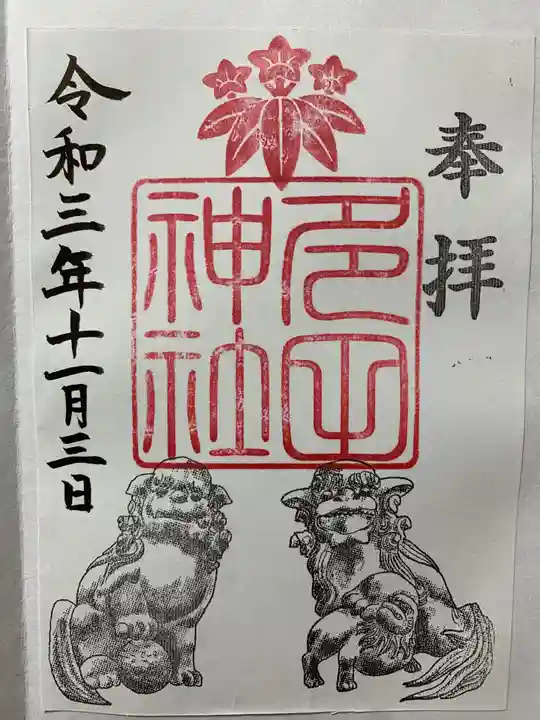 奉拝
多田
神社
令和三年十一月三日